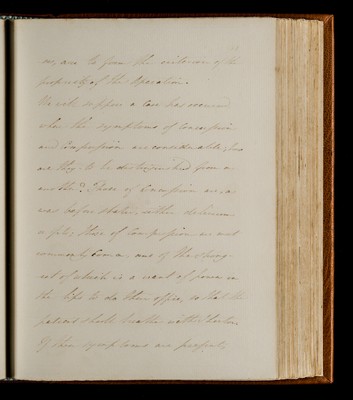 are to form the criterion of the
propriety of the Operation.
We will suppose a case has occurred
when the symptoms of Concussion
and Compression are considerable; how
are they to be distinguished from a-
nother? Those of Concussion are, as
was before stated, either delirium
or fits; those of Compression are most
commonly Coma, one of the strong-
est of which is a want of power in
the lips to do their office, so that the
patient should breathe
If these symptoms are present,